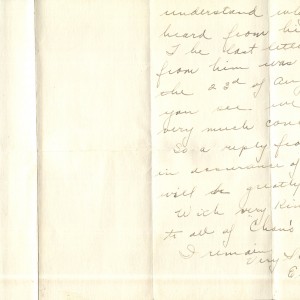 understand
heard from
The last
from him was
the 23rd of Au
you see we
very much con
So a reply fro
in assurance of
will be greatly
With very kin
to all of Chas's
I remain
Very
E